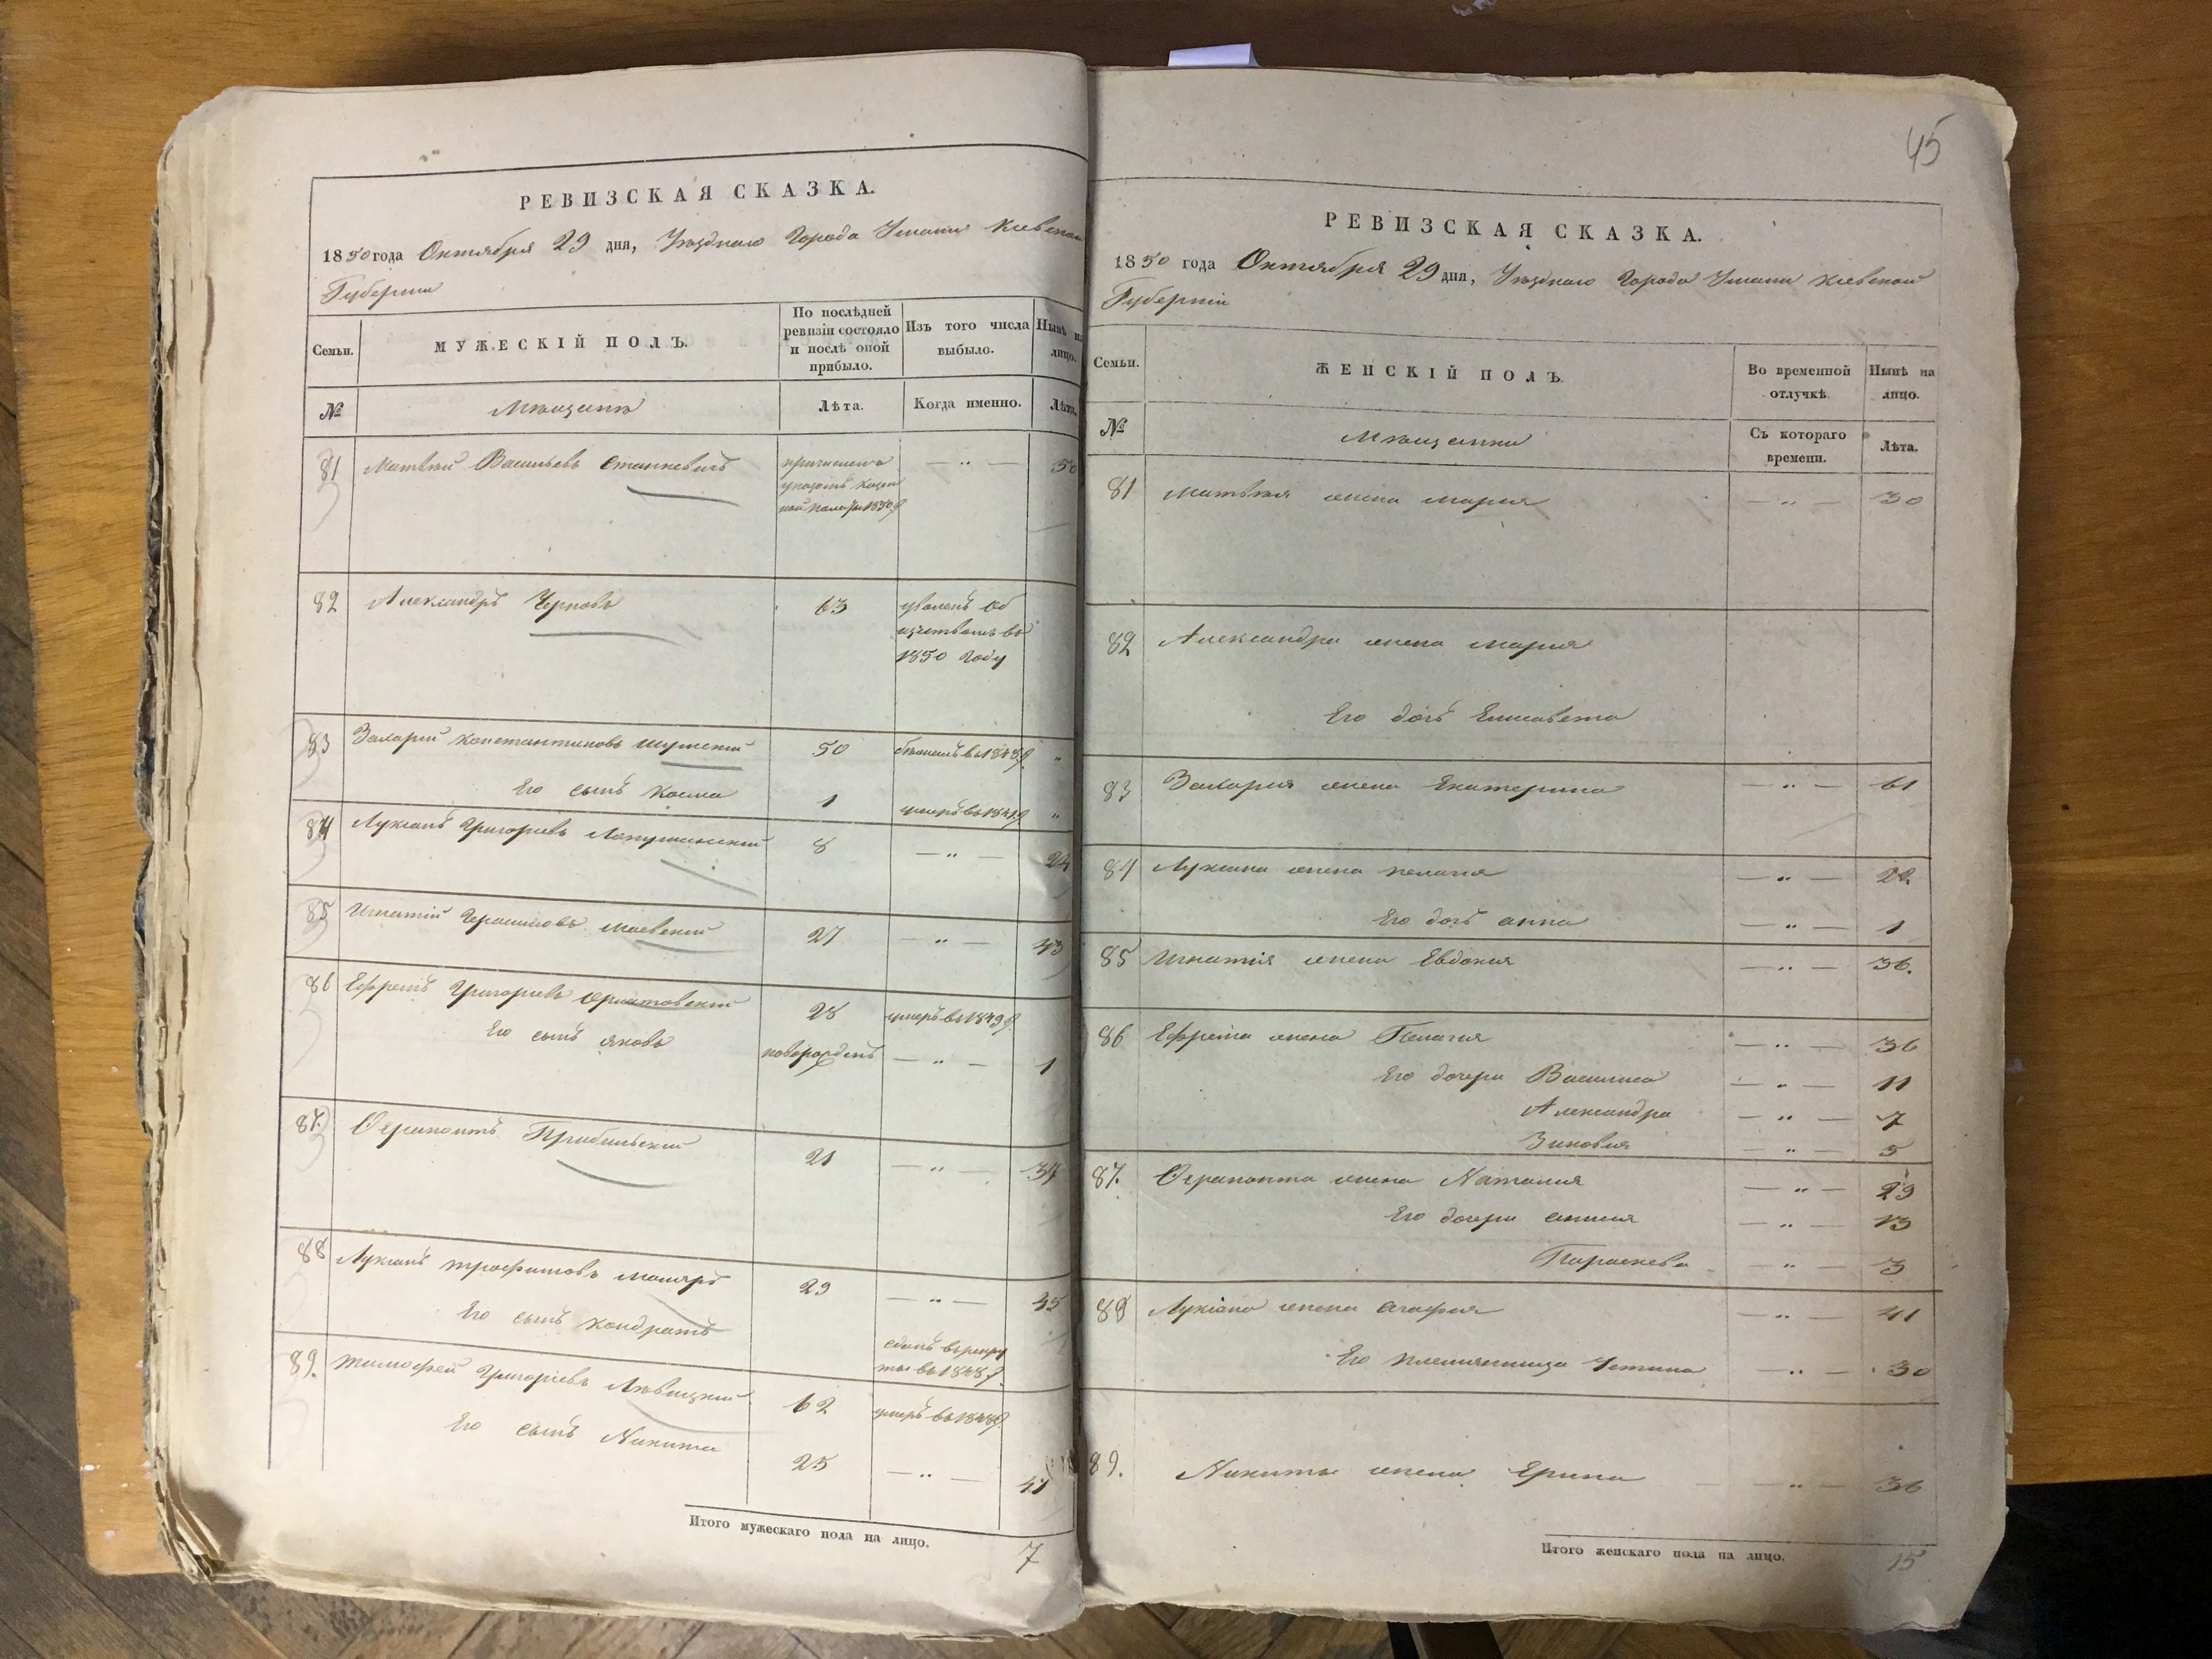 РЕВИЗСКАЯ СКАЗКА.
1850 года Октября 29 дня, Уѣзднаго Города Умани Кіевской
Губерніи
Семьи.
МУЖЕСКІЙ ПОЛЪ.
По послѣдней
ревизіи состояло
и послѣ оной
прибыло.
Изъ того числа
выбыло.
Нынѣ на
лицо.
№
Мѣщане
Лѣта.
Когда именно.
Лѣта.
81 Матвѣй Васильевъ Станкевичъ — „ — 50
указомъ Казен
ной палаты 1850 г.
82 Александръ Черновъ 63 уволенъ об
ществомъ въ
1850 году
83 Захарій Константиновъ 50 „
Его сынъ Козма 1 умеръ въ „
84 Лукіанъ Григорьевъ Лопушинскій 8 — „ — 24
85 Игнатій Герасимовъ Маевскій 27 — „ — 43
86 Ефремъ Григорьевъ 28 умеръ въ 1849 г.
Его сынъ Яковъ новорожденъ — „ — 1
87. Ферапонтъ Прибыльскій 21 — „ — 37
88 Лукіанъ Трофимовъ Маляръ 29 — „ — 45
Его сынъ Кондратъ сданъ въ рекру
ты въ 1848 г.
89. Тимофей Григоріевъ 62 умеръ въ 1848 г.
Его сынъ Никита 25 — „ — 41
Итого мужескаго пола на лицо. 7
45
РЕВИЗСКАЯ СКАЗКА.
1850 года Октября 29 дня, Уѣзднаго Города Умани Кіевской
Губерніи
Семьи.
ЖЕНСКІЙ ПОЛЪ.
Во временной
отлучкѣ.
Нынѣ на
лицо.
№
Мѣщанки
Съ котораго
времени.
Лѣта.
81 Матвѣя жена Марія — „ — 30
82 Александра жена Марія
Его дочь Елисавета
83 Захарія жена Екатерина — „ — 61
84 Лукіана жена Пелагія — „ — 22
Его дочь Анна — „ — 1
85 Игнатія жена Евдокія — „ — 36.
86 Ефрема жена Пелагія — „ — 36
Его дочери Василиса — „ — 11
Александра — „ — 7
Зиновія — „ — 5
87. Ферапонта жена Наталия — „ — 29
Его дочери — „ — 13
Параскева — „ — 3
88 Лукіана жена Агафія — „ — 41
Его племянница Устина — „ — 30
89. Никиты жена Ерина — „ — 36
Итого женскаго пола на лицо. 15